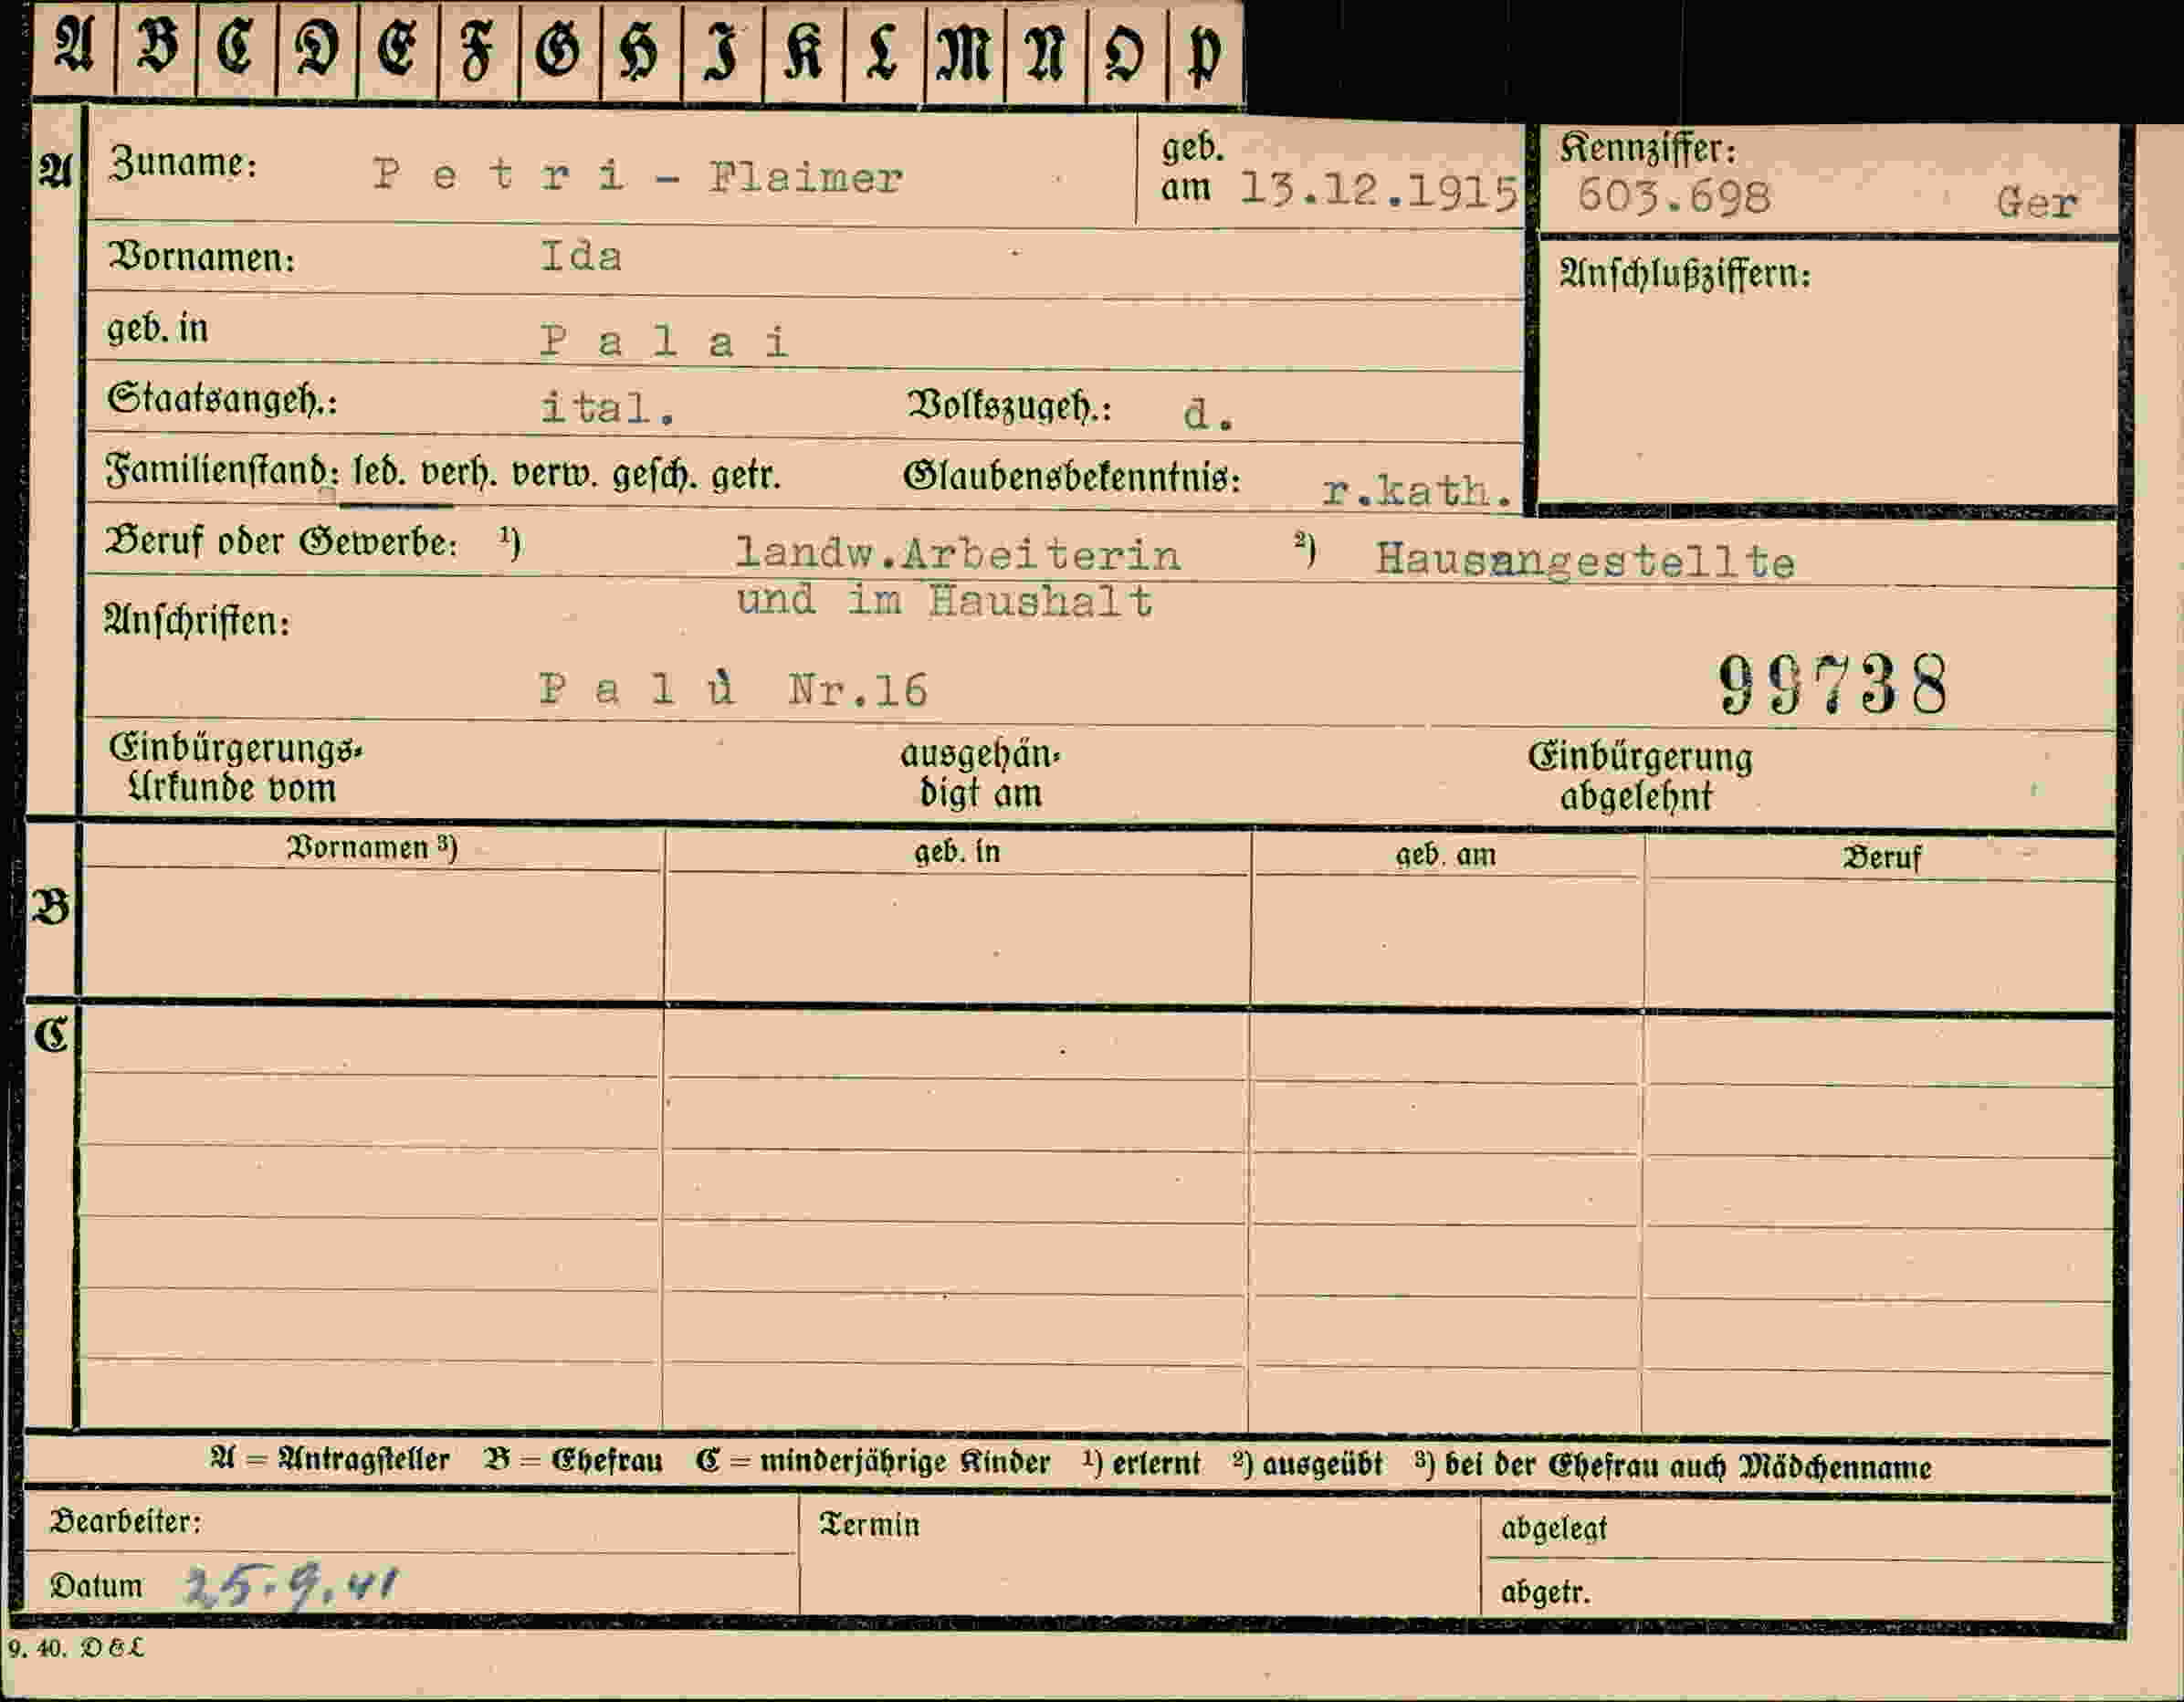 A B C D E F G H I K L M N O P
A Zuname: Petri - Flaimer geb. am 13.12.1915 Kennziffer: 603.698 Ger
Vornamen: Ida Anschlußziffern:
geb. in Palai
Staatsangeh.: ital. Volkszugeh.: d.
Familienstand: led. verh. verw. gesch. getr. Glaubensbekenntnis: r.kath.
Beruf oder Gewerbe: 1) landw.Arbeiterin 2) Hausangestellte
und im Haushalt
Anschriften:
Palù Nr.16 99738
Einbürgerungs- ausgehän- Einbürgerung
Urkunde vom digt am abgelehnt
Vornamen 3) geb. in geb. am Beruf
B
C
A = Antragsteller B = Ehefrau C = minderjährige Kinder 1) erlernt 2) ausgeübt 3) bei der Ehefrau auch Mädchenname
Bearbeiter: Termin abgelegt
Datum 25.9.41 abgetr.
9. 40. D&L